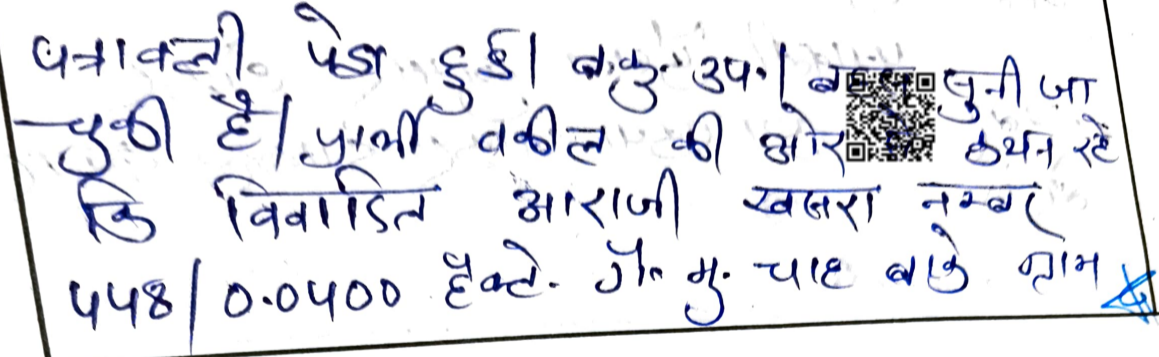 पत्रावली पेश हुई। व.कु. उप.। बहस सुनी जा
चुकी है। प्रार्थी वकील की ओर कथन रहे
कि विवादित आराजी खसरा नम्बर
448/0.0400 हैक्टे. गै. मु. चाह वाके ग्राम